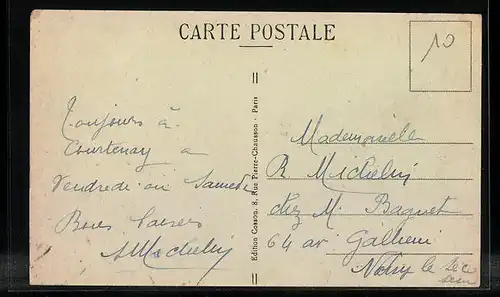 CARTE POSTALE
10
Toujours à
Courtenay a
Vendredi ou Samedi
Bons Baisers
Michelin
Edition Cosson, 8, Rue Pierre-Chausson - Paris
Mademoiselle
R Michelin
chez M. Baquet
64 av Gallieni
Noisy le Sec
Seine